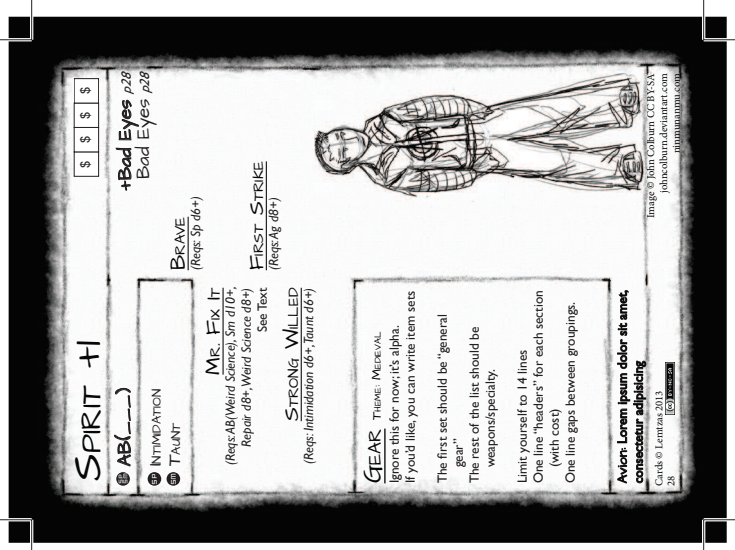 SPIRIT +1
$ $ $ $
AB(___)
+Bad Eyes p28
Bad Eyes p28
SP INTIMIDATION
SM TAUNT
BRAVE
(Reqs: Sp d6+)
MR. FIX IT
(Reqs:AB(Weird Science), Sm d10+,
Repair d8+, Weird Science d8+)
See Text
FIRST STRIKE
(Reqs:Ag d8+)
STRONG WILLED
(Reqs: Intimidation d6+, Taunt d6+)
GEAR THEME: MEDEVAL
Ignore this for now; it's alpha.
If you'd like, you can write item sets
The first set should be "general
gear"
The rest of the list should be
weapons/specialty.
Limit yourself to 14 lines
One line "headers" for each section
(with cost)
One line gaps between groupings.
Avior: Lorem ipsum dolor sit amet,
consectetur adipisicing
Cards © Lerntzas 2013
28
Image © John Colburn CC BY-SA
johncolburn.deviantart.com
ninmunanmu.com